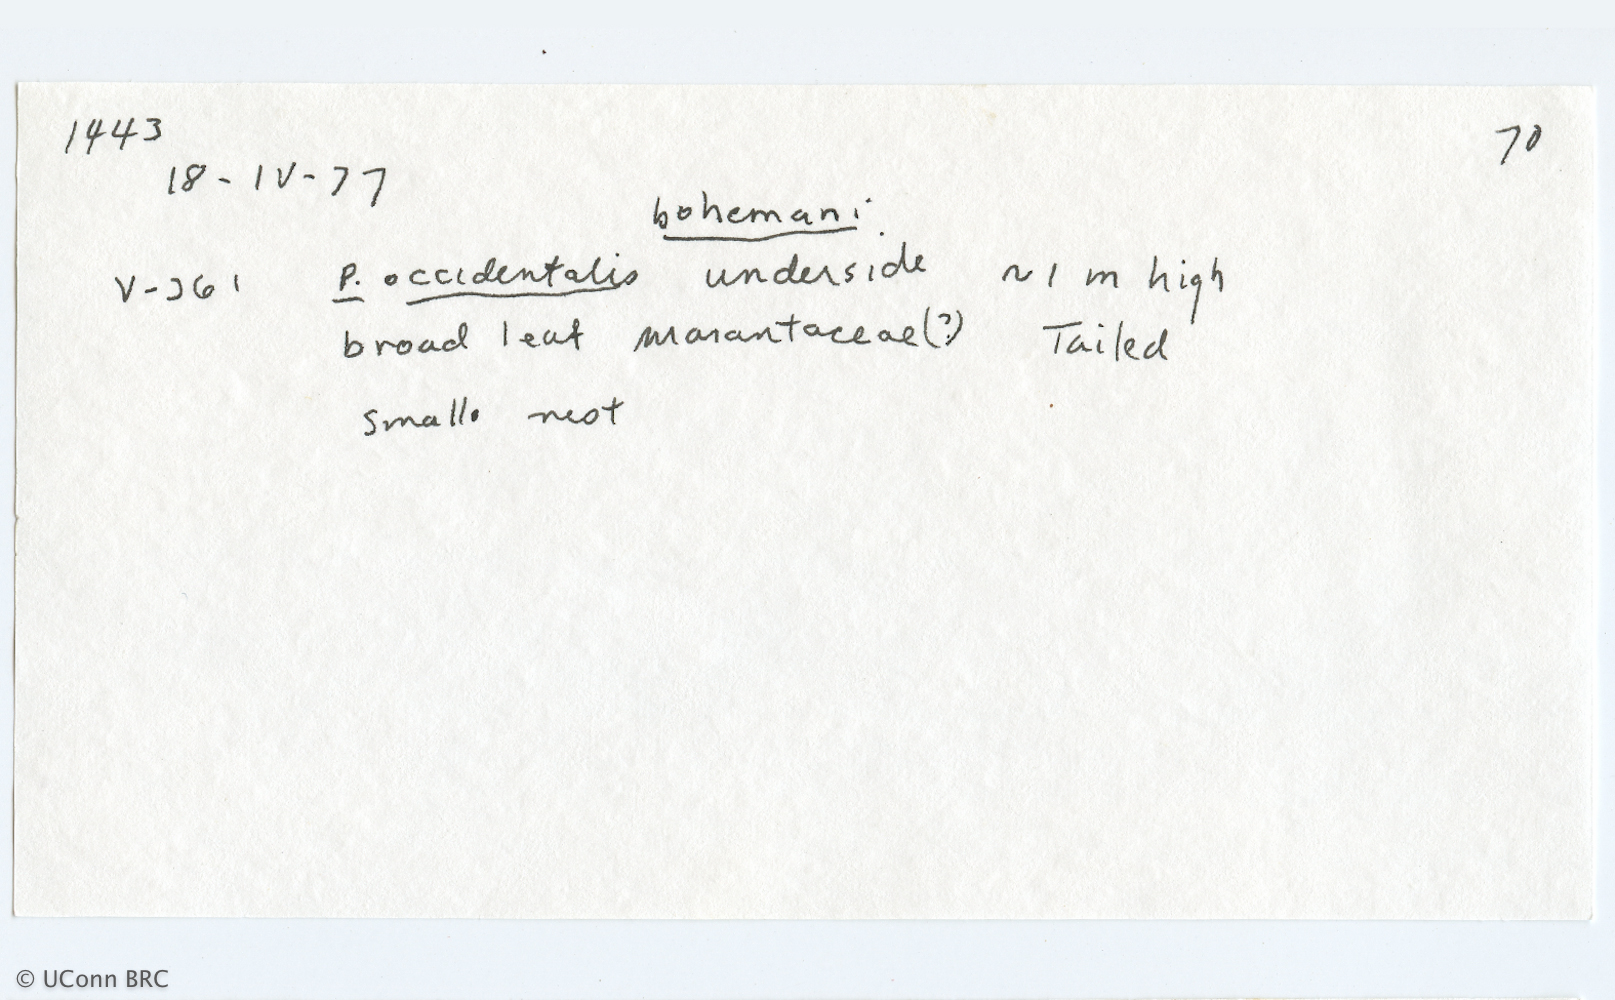 1443
70
18-IV-77
bohemani
V-361 P. occidentalis underside ~1 m high
broad leaf marantaceae(?) Tailed
small nest
© UConn BRC